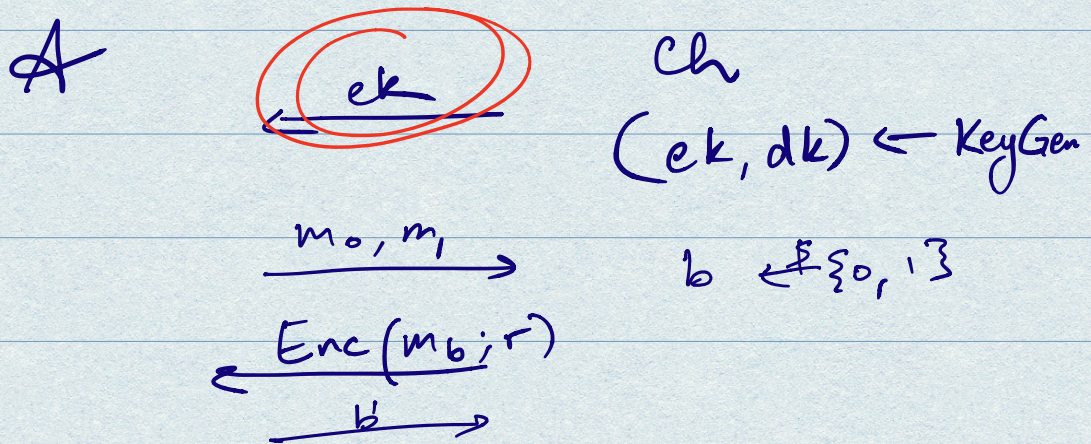 A Ch
ek
(ek, dk) ← KeyGen
m₀, m₁
b ←$ {0, 1}
Enc(m_b; r)
b'